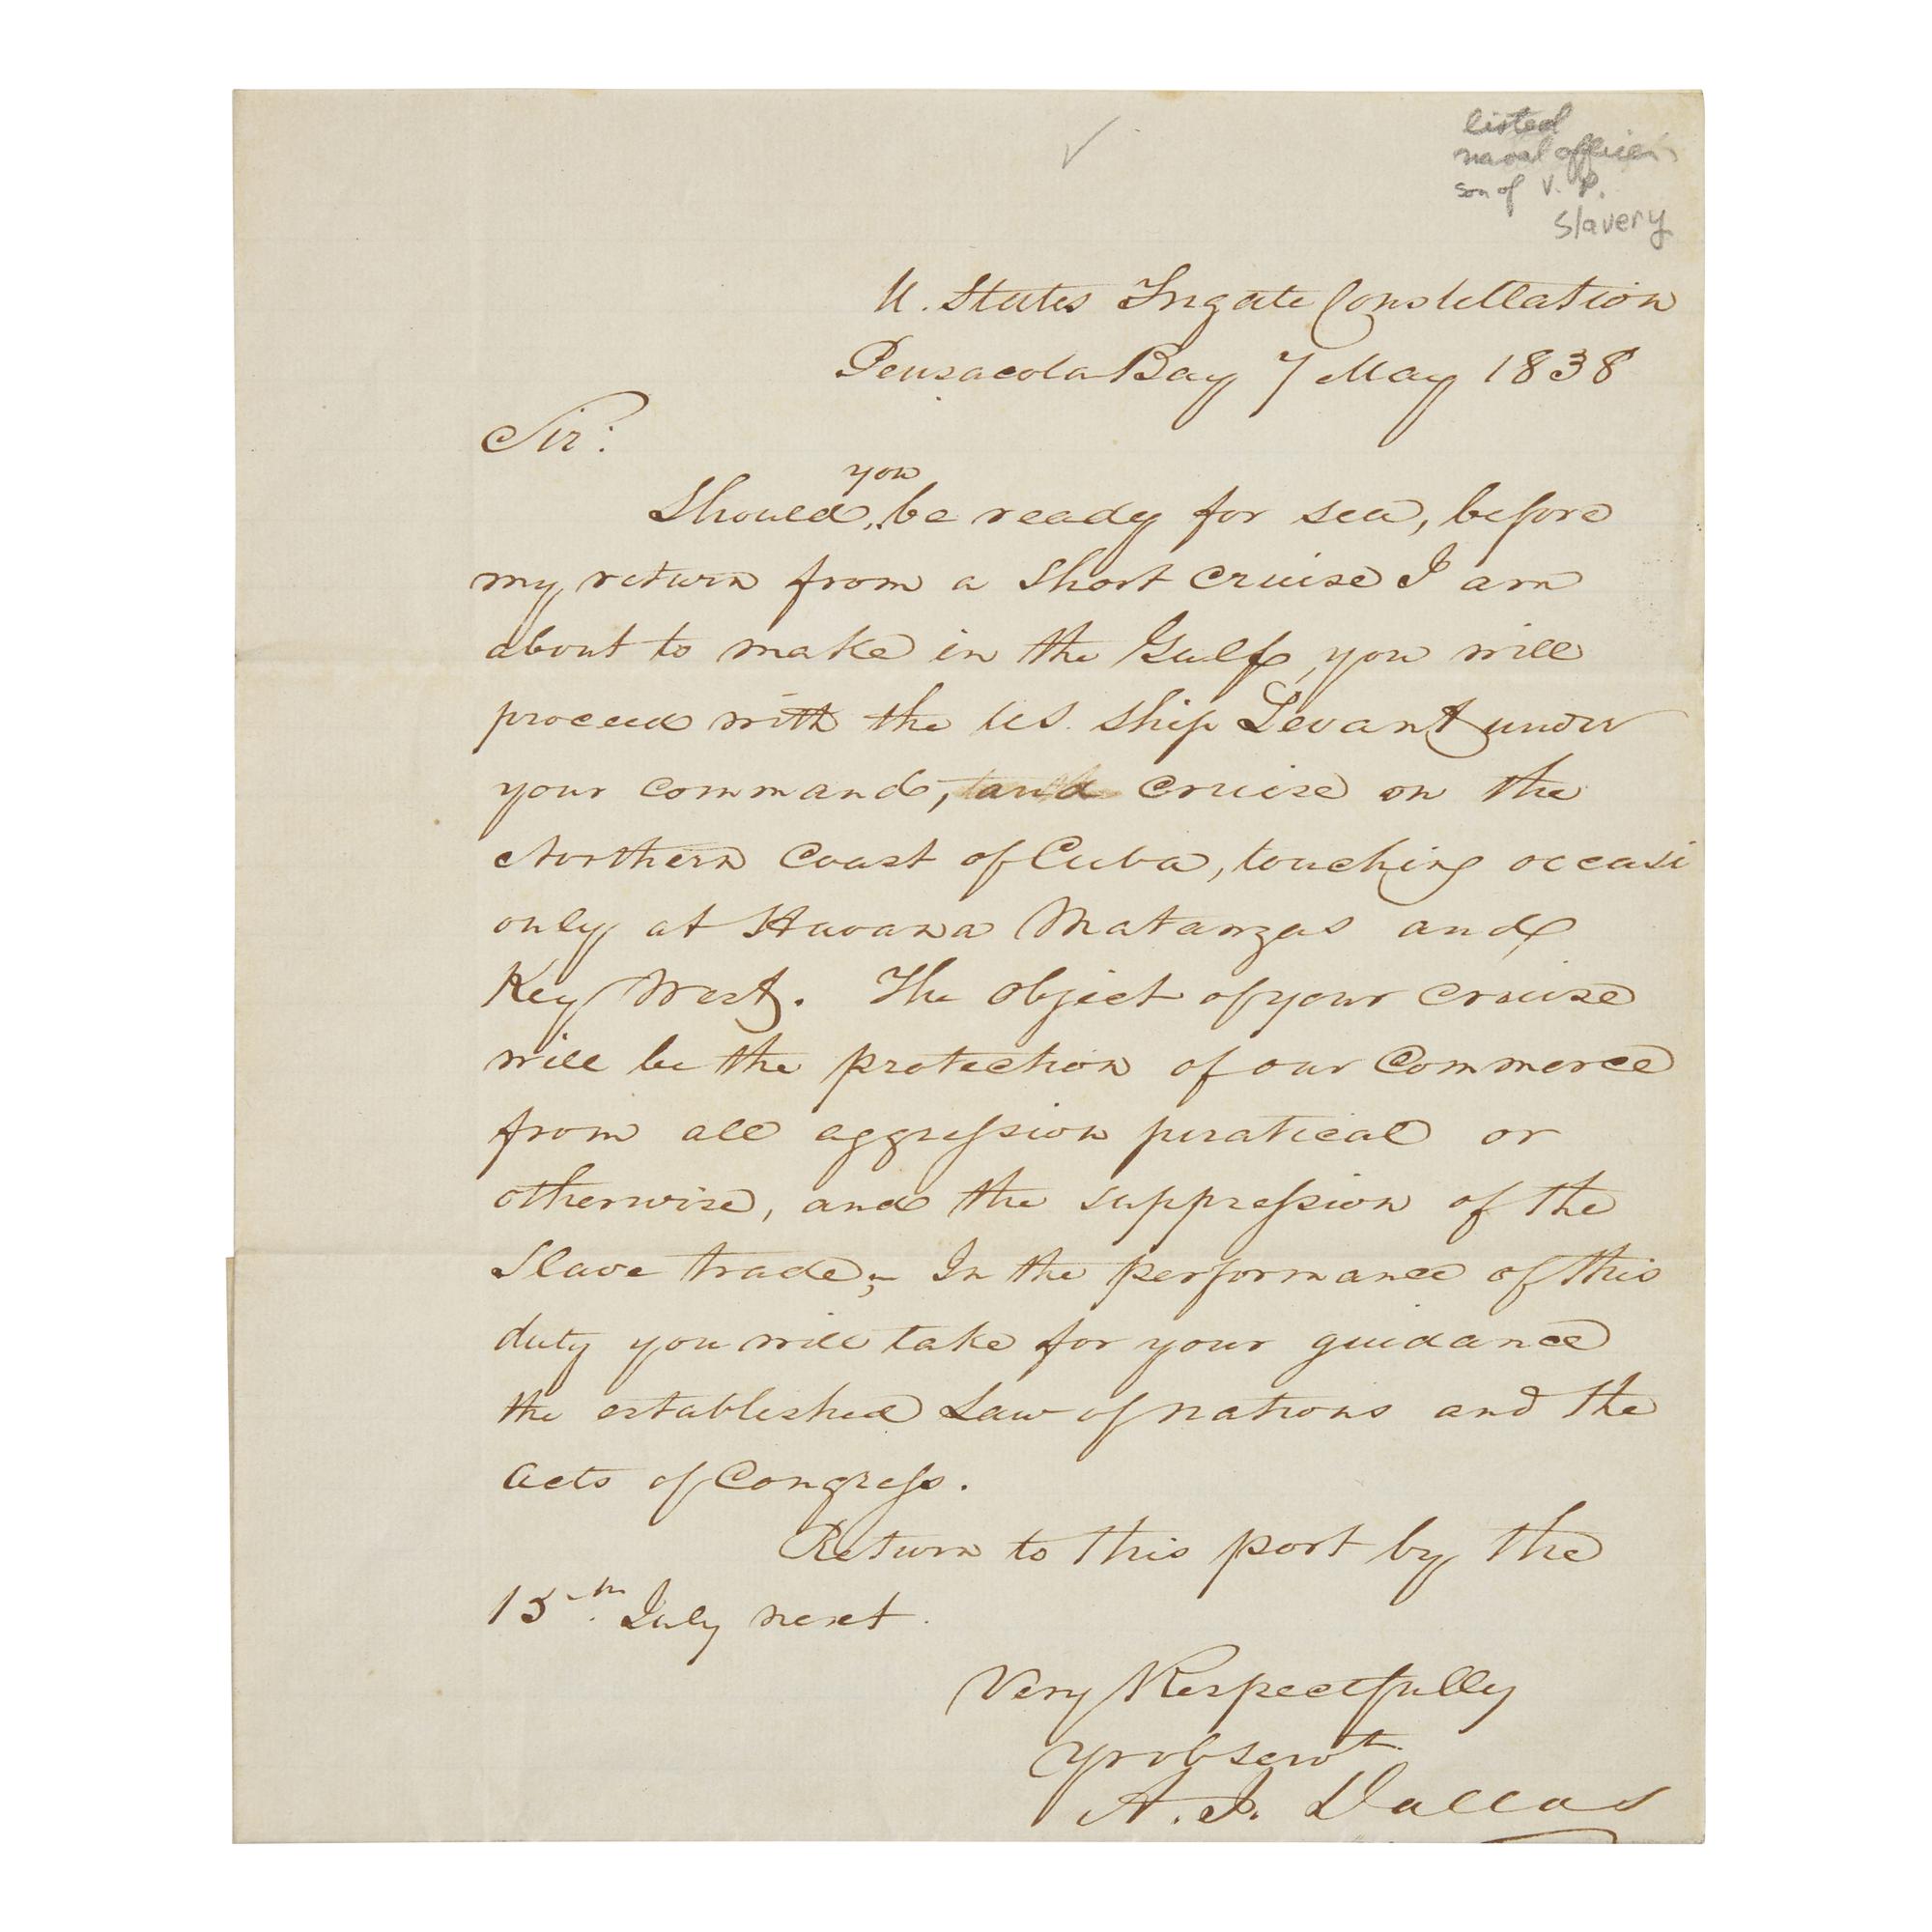 listed
naval officer
son of V. P.
Slavery
U. States Frigate Constellation
Pensacola Bay 7 May 1838
Sir:
you
Should, be ready for sea, before
my return from a short cruise I am
about to make in the Gulf, you will
proceed with the U.S. Ship Levant under
your command, and cruise on the
Northern Coast of Cuba, touching occasi
only at Havana Matanzas and
Key West. The object of your cruise
will be the protection of our Commerce
from all aggression piratical or
otherwise, and the suppression of the
Slave trade;- In the performance of this
duty you will take for your guidance
the established Law of nations and the
Acts of Congress.
Return to this port by the
15th July next.
Very Respectfully
Yr ob servt
A. J. Dallas